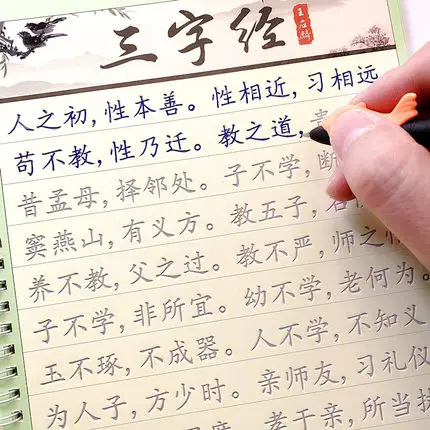 三字经
王应麟
人之初,性本善。性相近,习相远
苟不教,性乃迁。教之道,
昔孟母,择邻处。子不学,断
窦燕山,有义方。教五子,名
养不教,父之过。教不严,师之惰
子不学,非所宜。幼不学,老何为。
玉不琢,不成器。人不学,不知义
为人子,方少时。亲师友,习礼仪
孝于亲,所当执